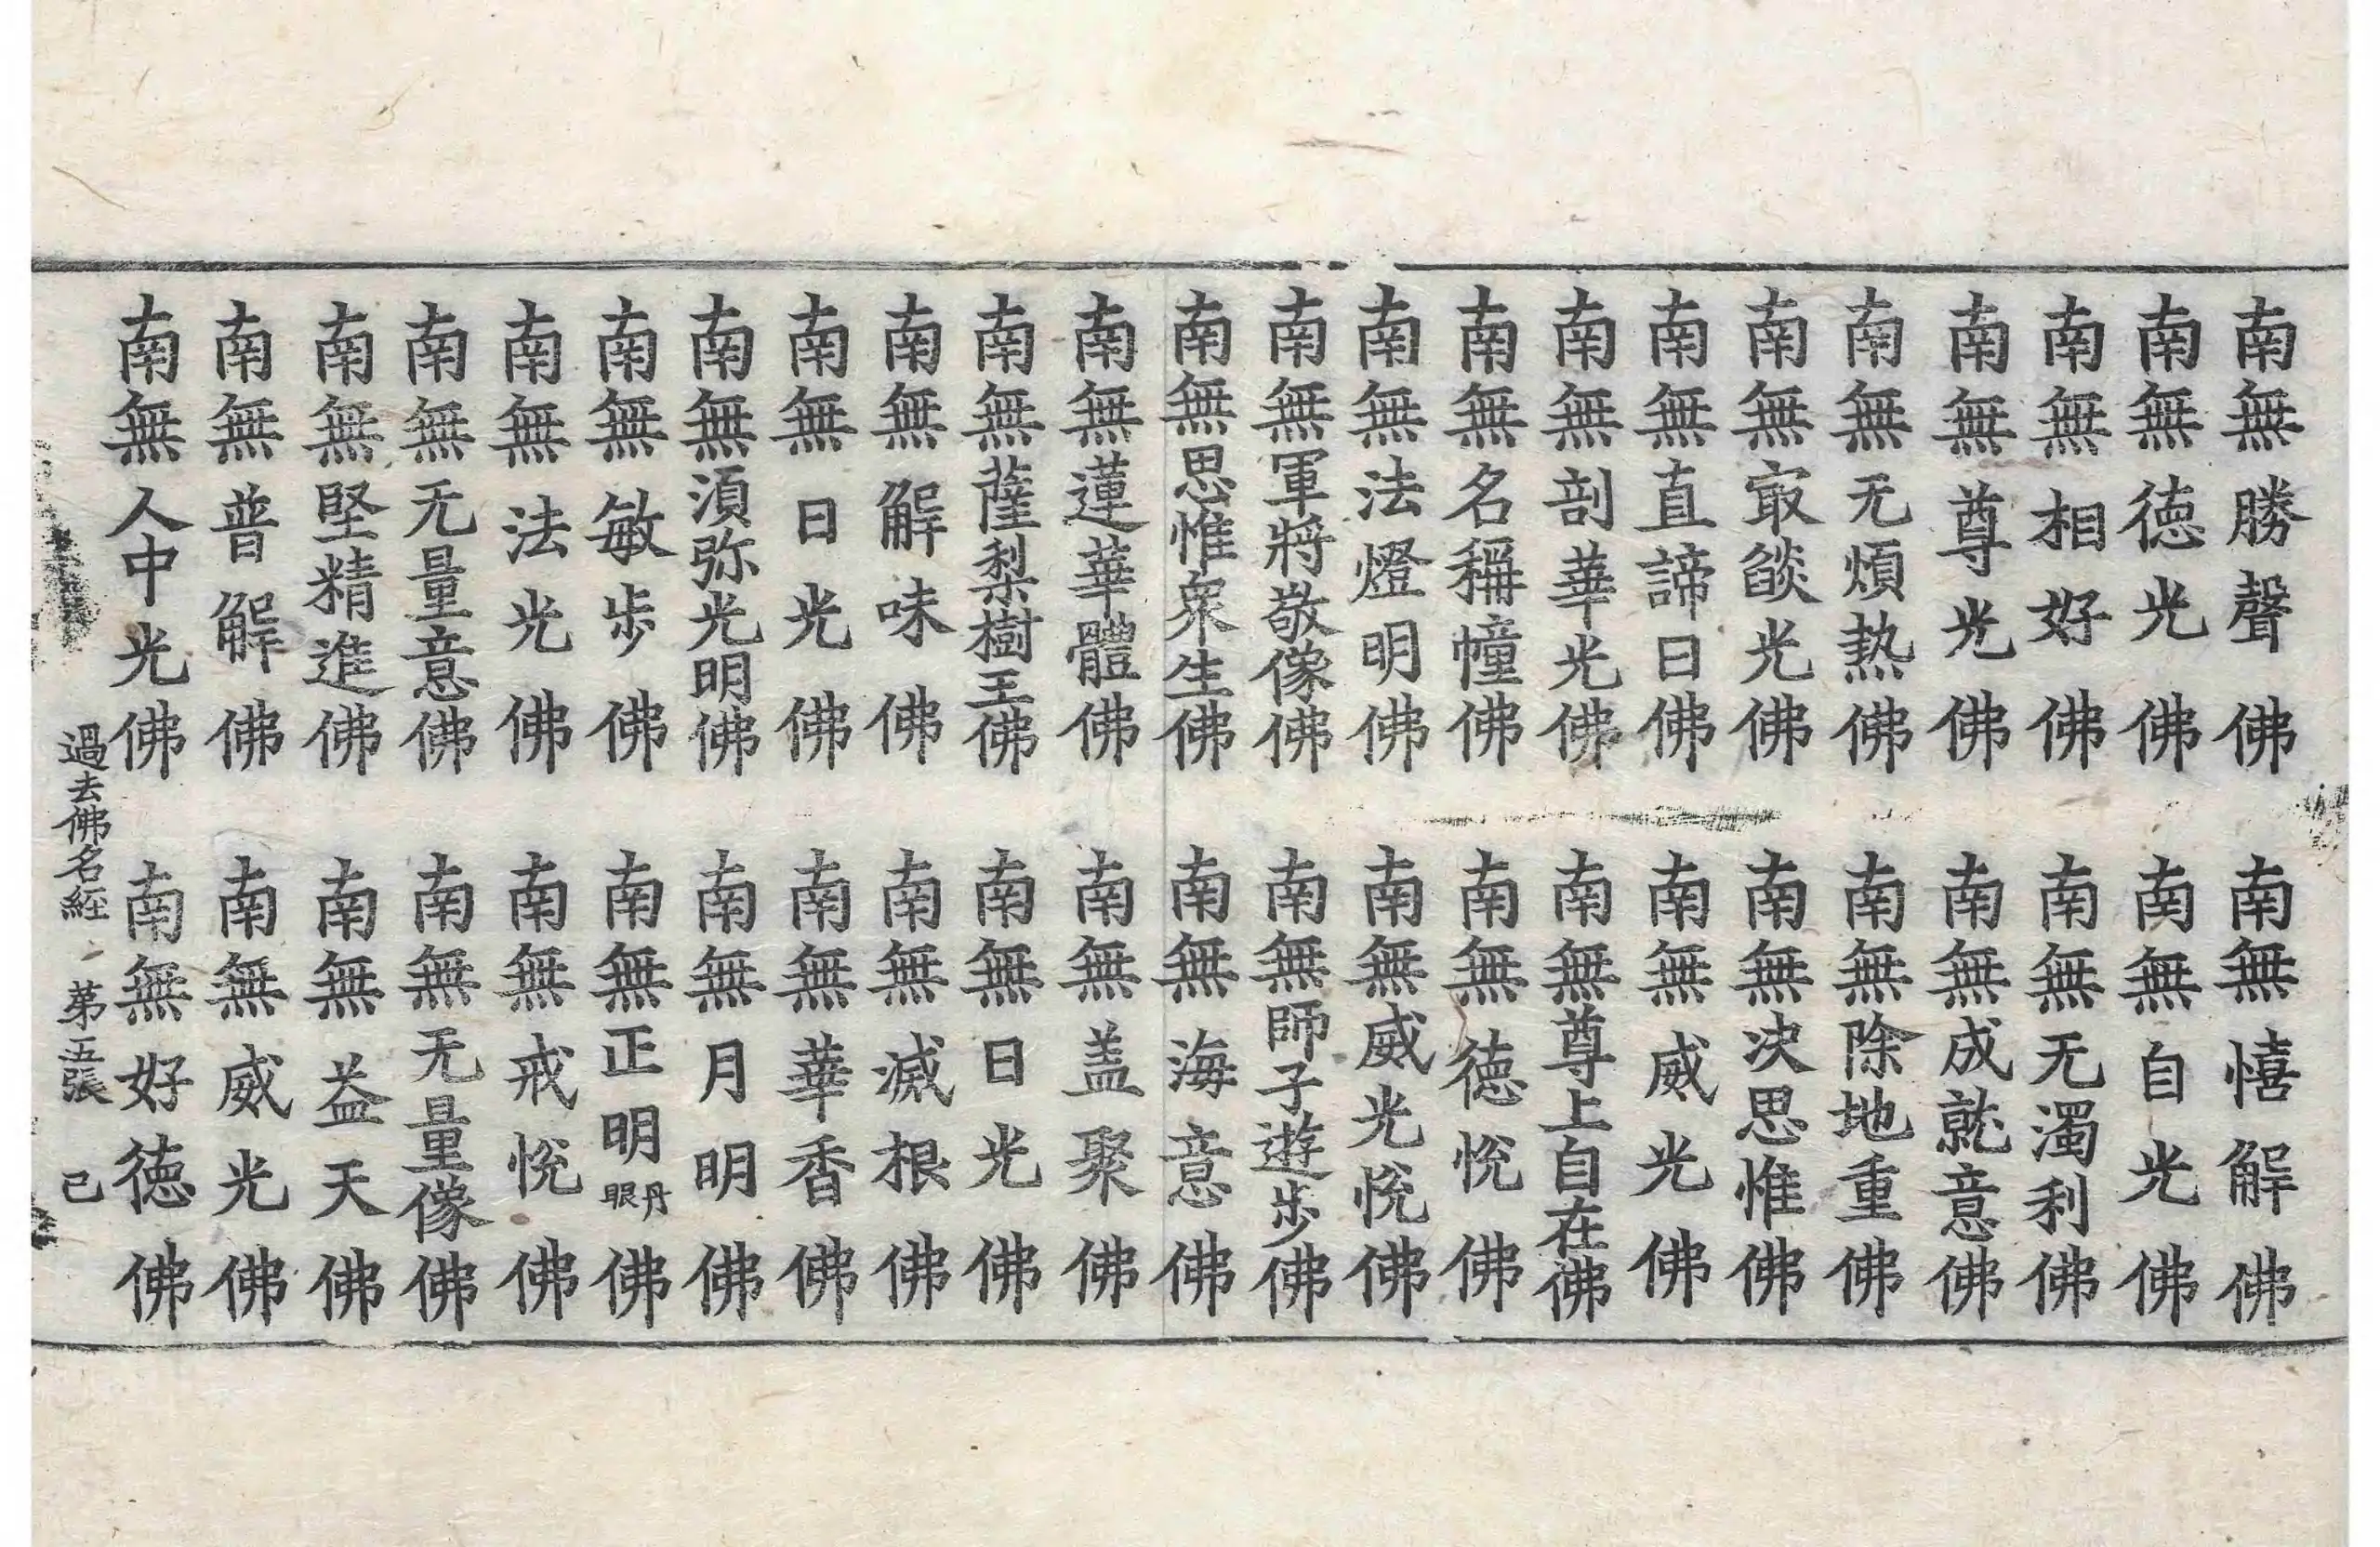 南無勝聲佛　南無憘解佛
南無徳光佛　南無自光佛
南無相好佛　南無无濁利佛
南無尊光佛　南無成就意佛
南無无煩熱佛　南無除地重佛
南無㝡燄光佛　南無决思惟佛
南無直諦日佛　南無威光佛
南無剖華光佛　南無尊上自在佛
南無名稱幢佛　南無徳悅佛
南無法燈明佛　南無威光悅佛
南無軍將敬像佛　南無師子遊步佛
南無思惟衆生佛　南無海意佛
南無蓮華體佛　南無盖聚佛
南無薩梨樹王佛　南無日光佛
南無解味佛　南無滅根佛
南無日光佛　南無華香佛
南無須弥光明佛　南無月明佛
南無敏步佛　南無正明丹眼佛
南無法光佛　南無戒悅佛
南無无量意佛　南無无量像佛
南無堅精進佛　南無益天佛
南無普解佛　南無威光佛
南無人中光佛　南無好徳佛
過去佛名經　第五張　己